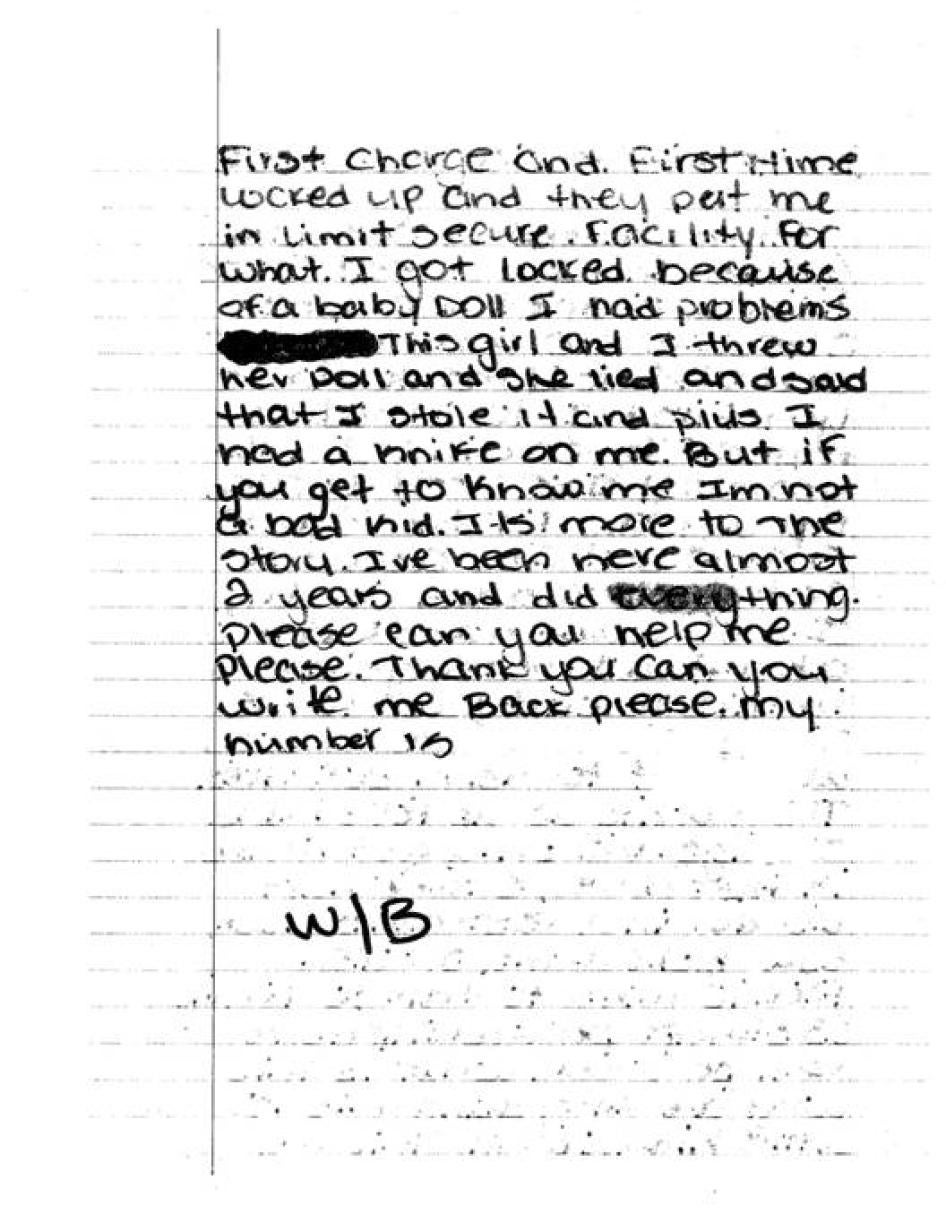 First Charge and. First time
locked up and they put me
in limit secure. Facility. For
what. I got locked because
of a baby Doll I had problems
This girl and I threw
her Doll and she lied and said
that I stole it and plus I
had a knife on me. But if
you get to know me Im not
a bad kid. Its more to the
story. I've been here almost
2 years and did everything.
please can you help me
please. Thank you can you
write me Back please. my
number is
W/B